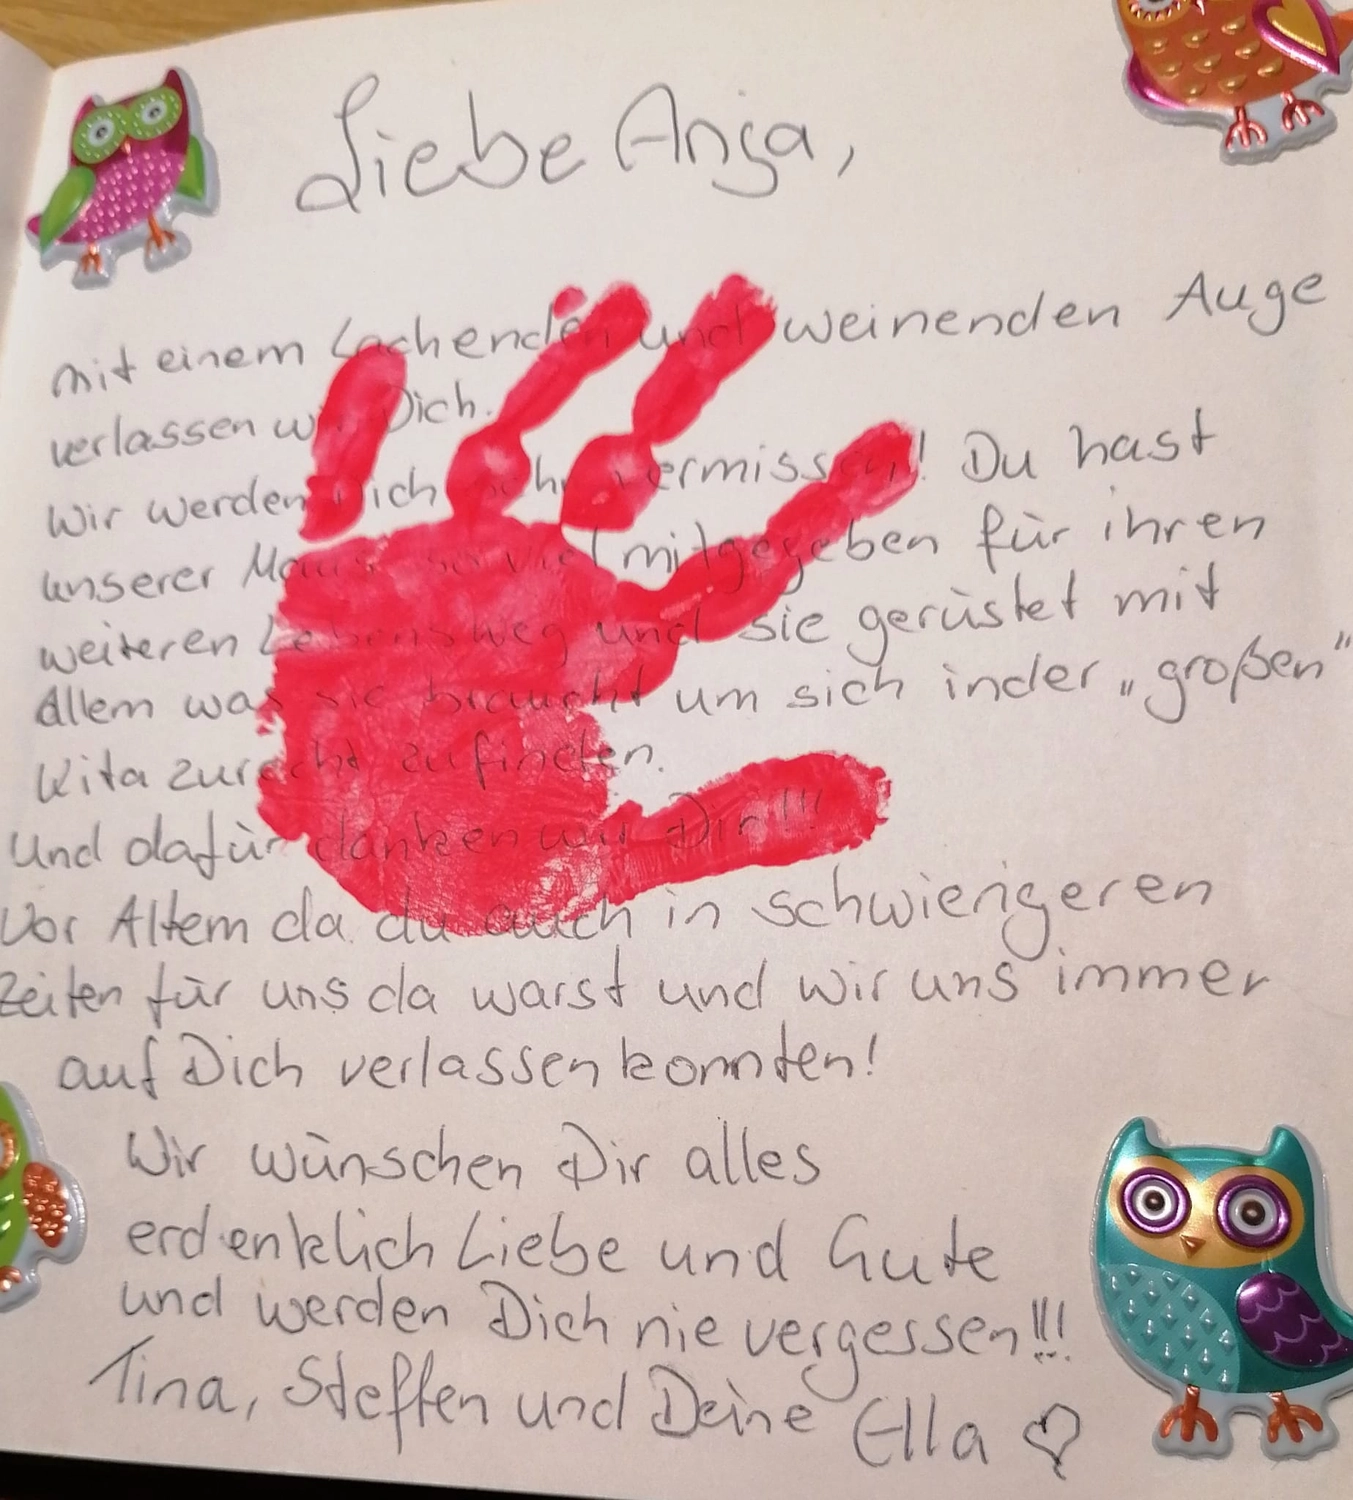 Liebe Anja,
mit einem Lachenden und weinenden Auge
verlassen wir Dich.
Wir werden Dich sehr vermissen! Du hast
unserer Maus so viel mitgegeben für ihren
weiteren Lebensweg und sie gerüstet mit
Allem was sie braucht um sich inder „großen“
Kita zurecht zufinden.
Und dafür danken wir Dir!!!
Vor Allem da du auch in schwierigeren
Zeiten für uns da warst und wir uns immer
auf Dich verlassen konnten!
Wir wünschen Dir alles
erdenklich Liebe und Gute
und werden Dich nie vergessen!!!
Tina, Steffen und Deine Ella ♡